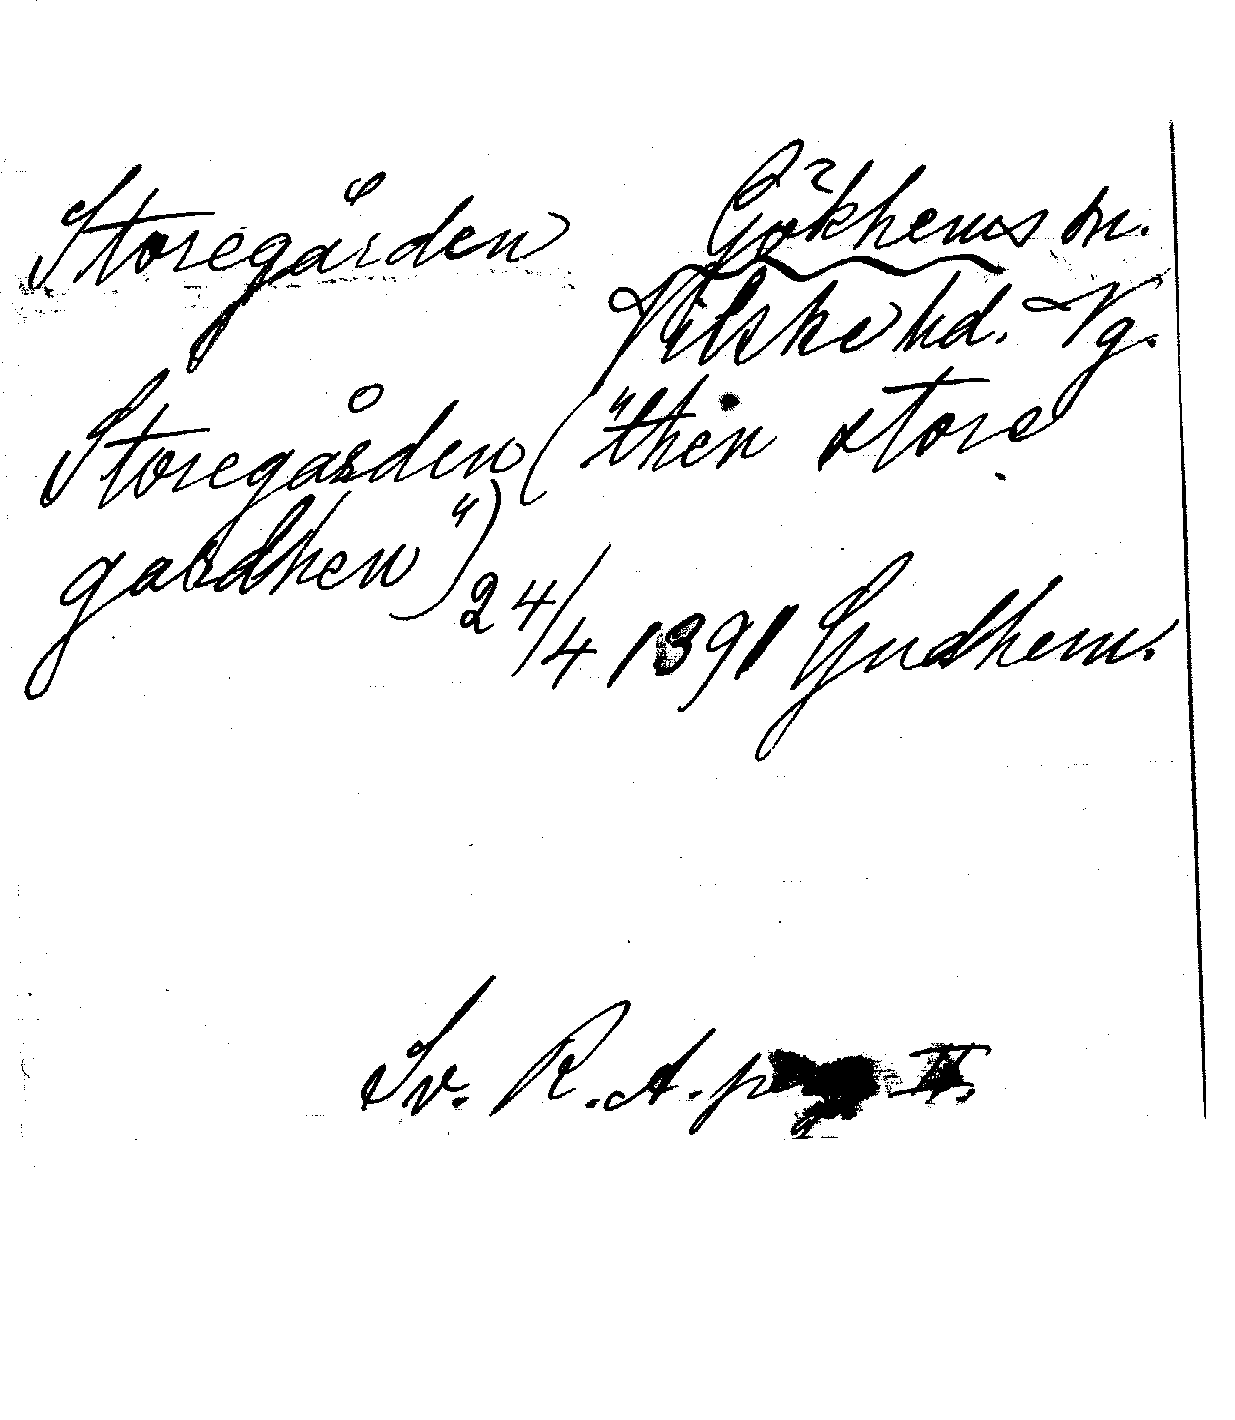 Storegården Gökhems sn.
Vilske hd. Vg.
Storegården ("then store
gardhen") 24/4 1391 Gudhem.
Sv. R. A. p II.